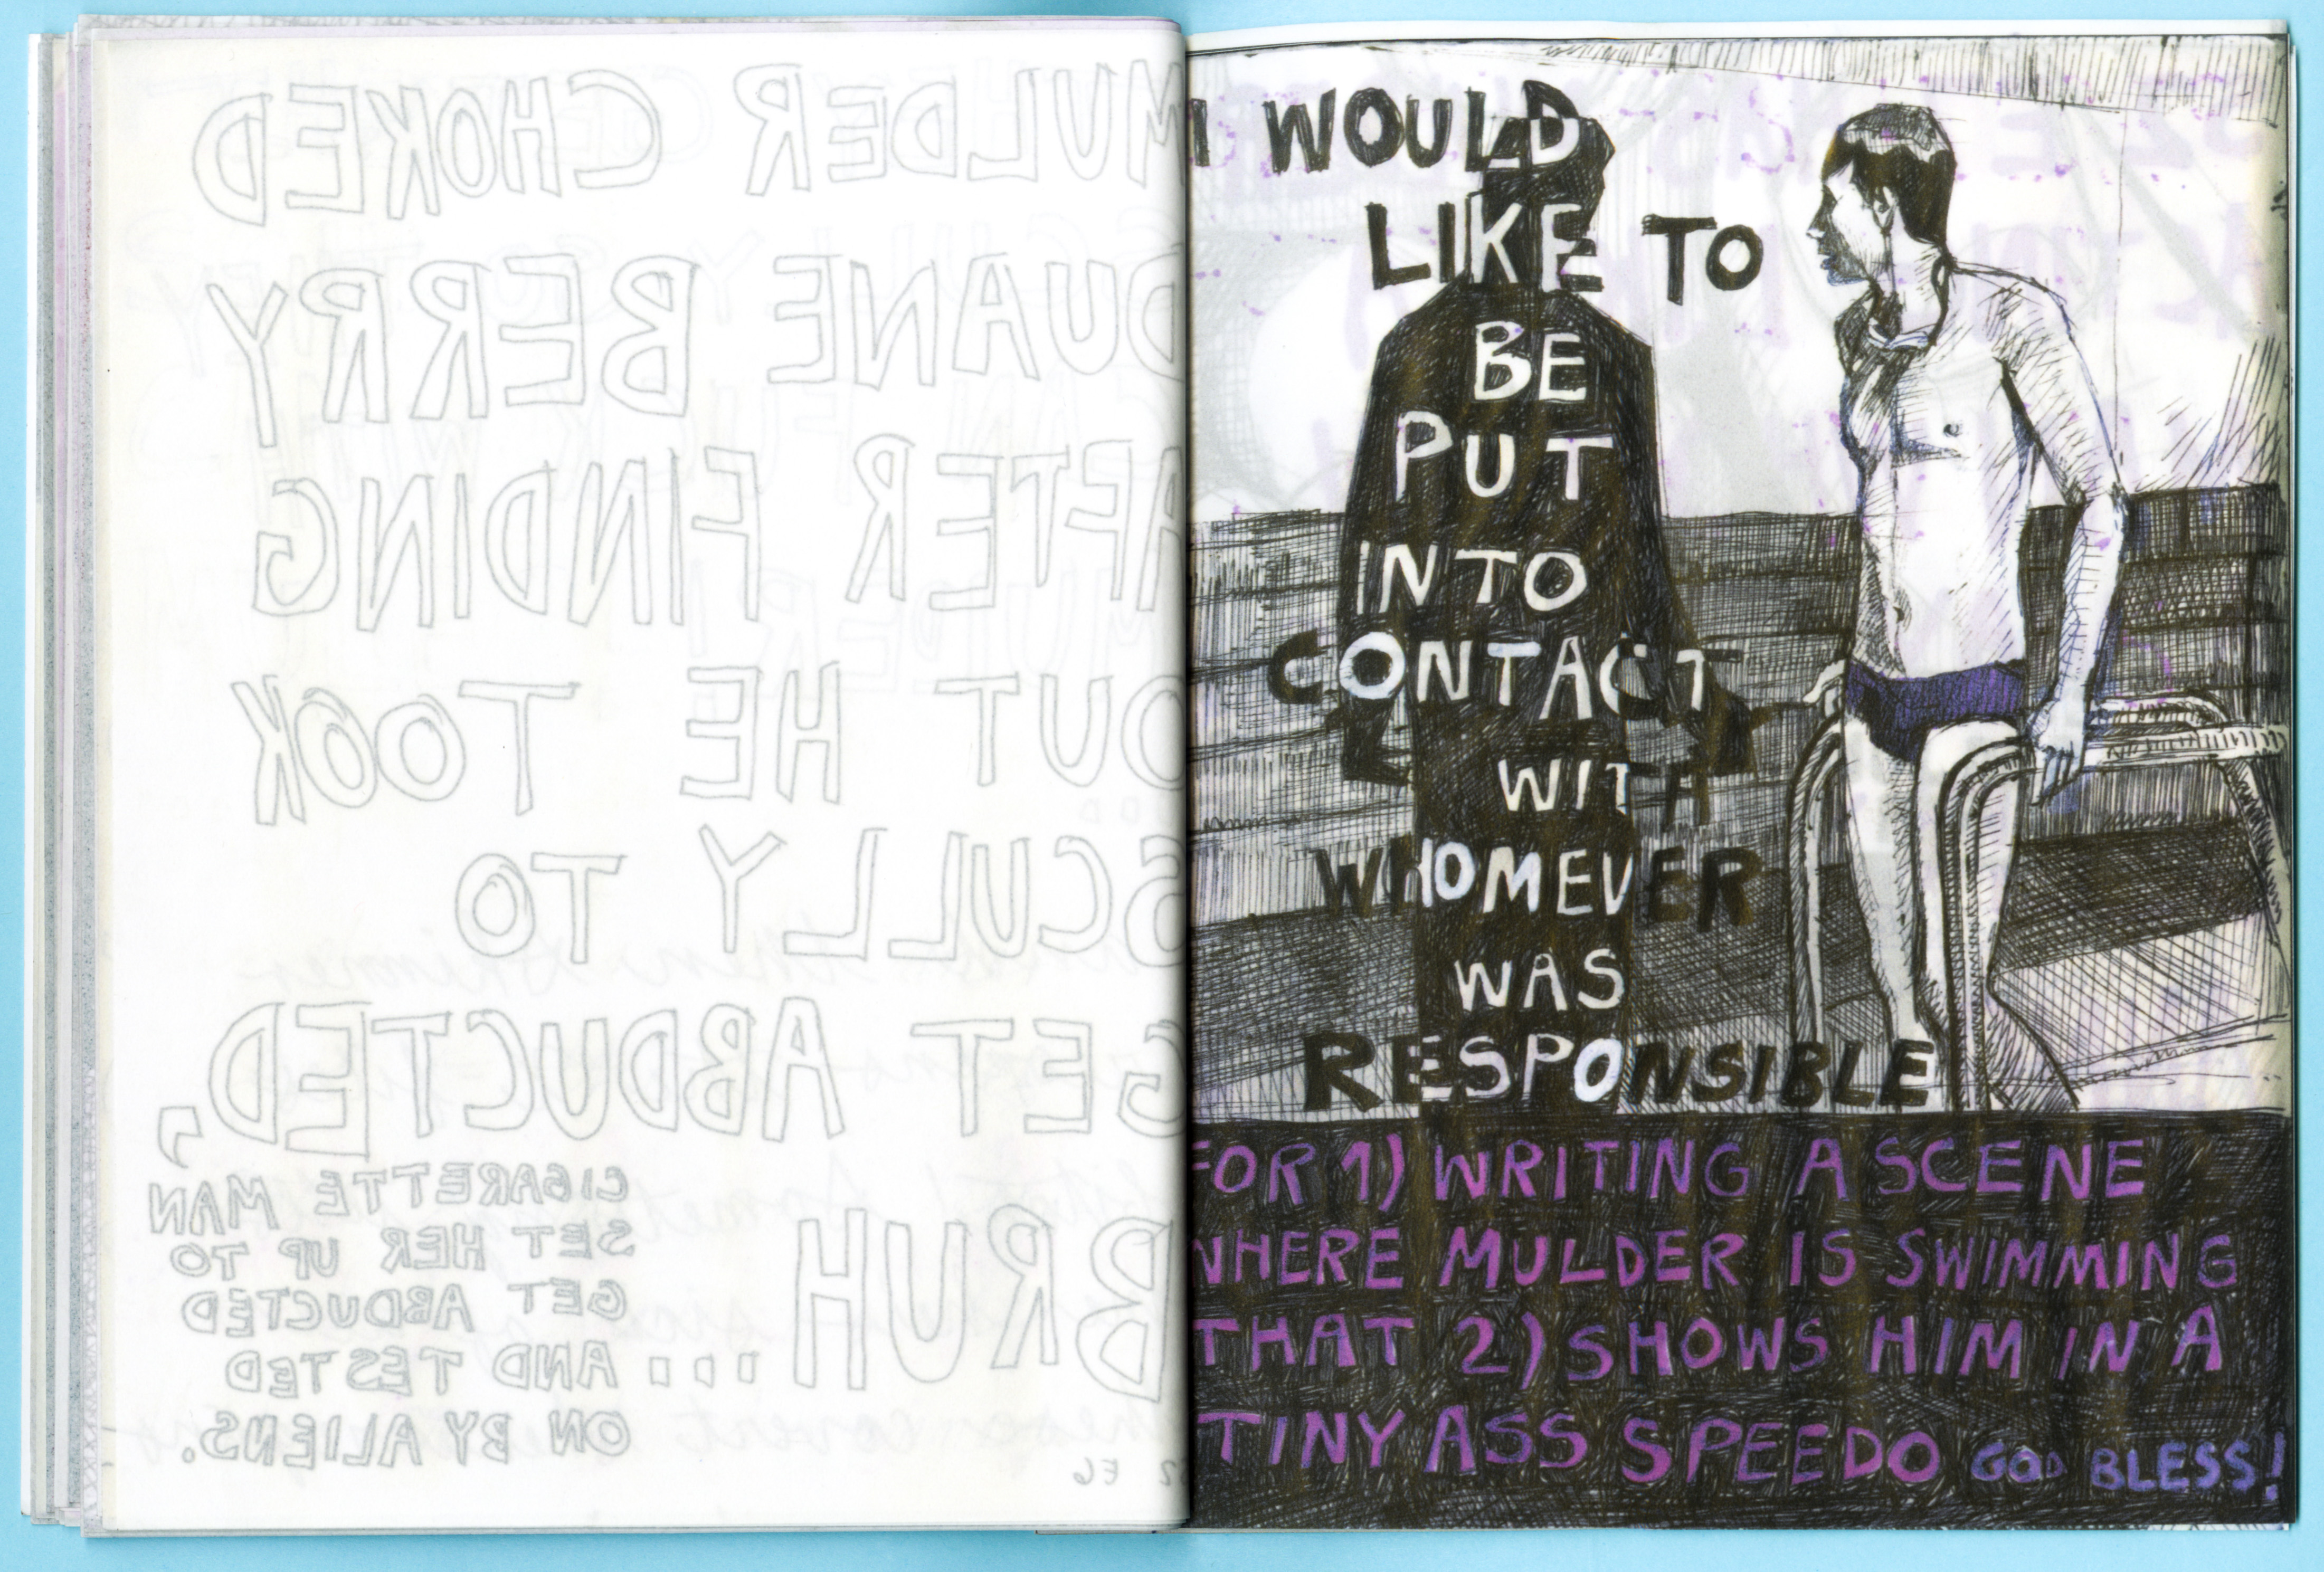 MULDER CHOKED
DUANE BERRY
AFTER FINDING
OUT HE TOOK
SCULLY TO
GET ABDUCTED,
BRUH...
CIGARETTE MAN
SET HER UP TO
GET ABDUCTED
AND TESTED
ON BY ALIENS.
S2 E6
I WOULD
LIKE TO
BE
PUT
INTO
CONTACT
WITH
WHOMEVER
WAS
RESPONSIBLE
FOR 1) WRITING A SCENE
WHERE MULDER IS SWIMMING
THAT 2) SHOWS HIM IN A
TINY ASS SPEEDO GOD BLESS!